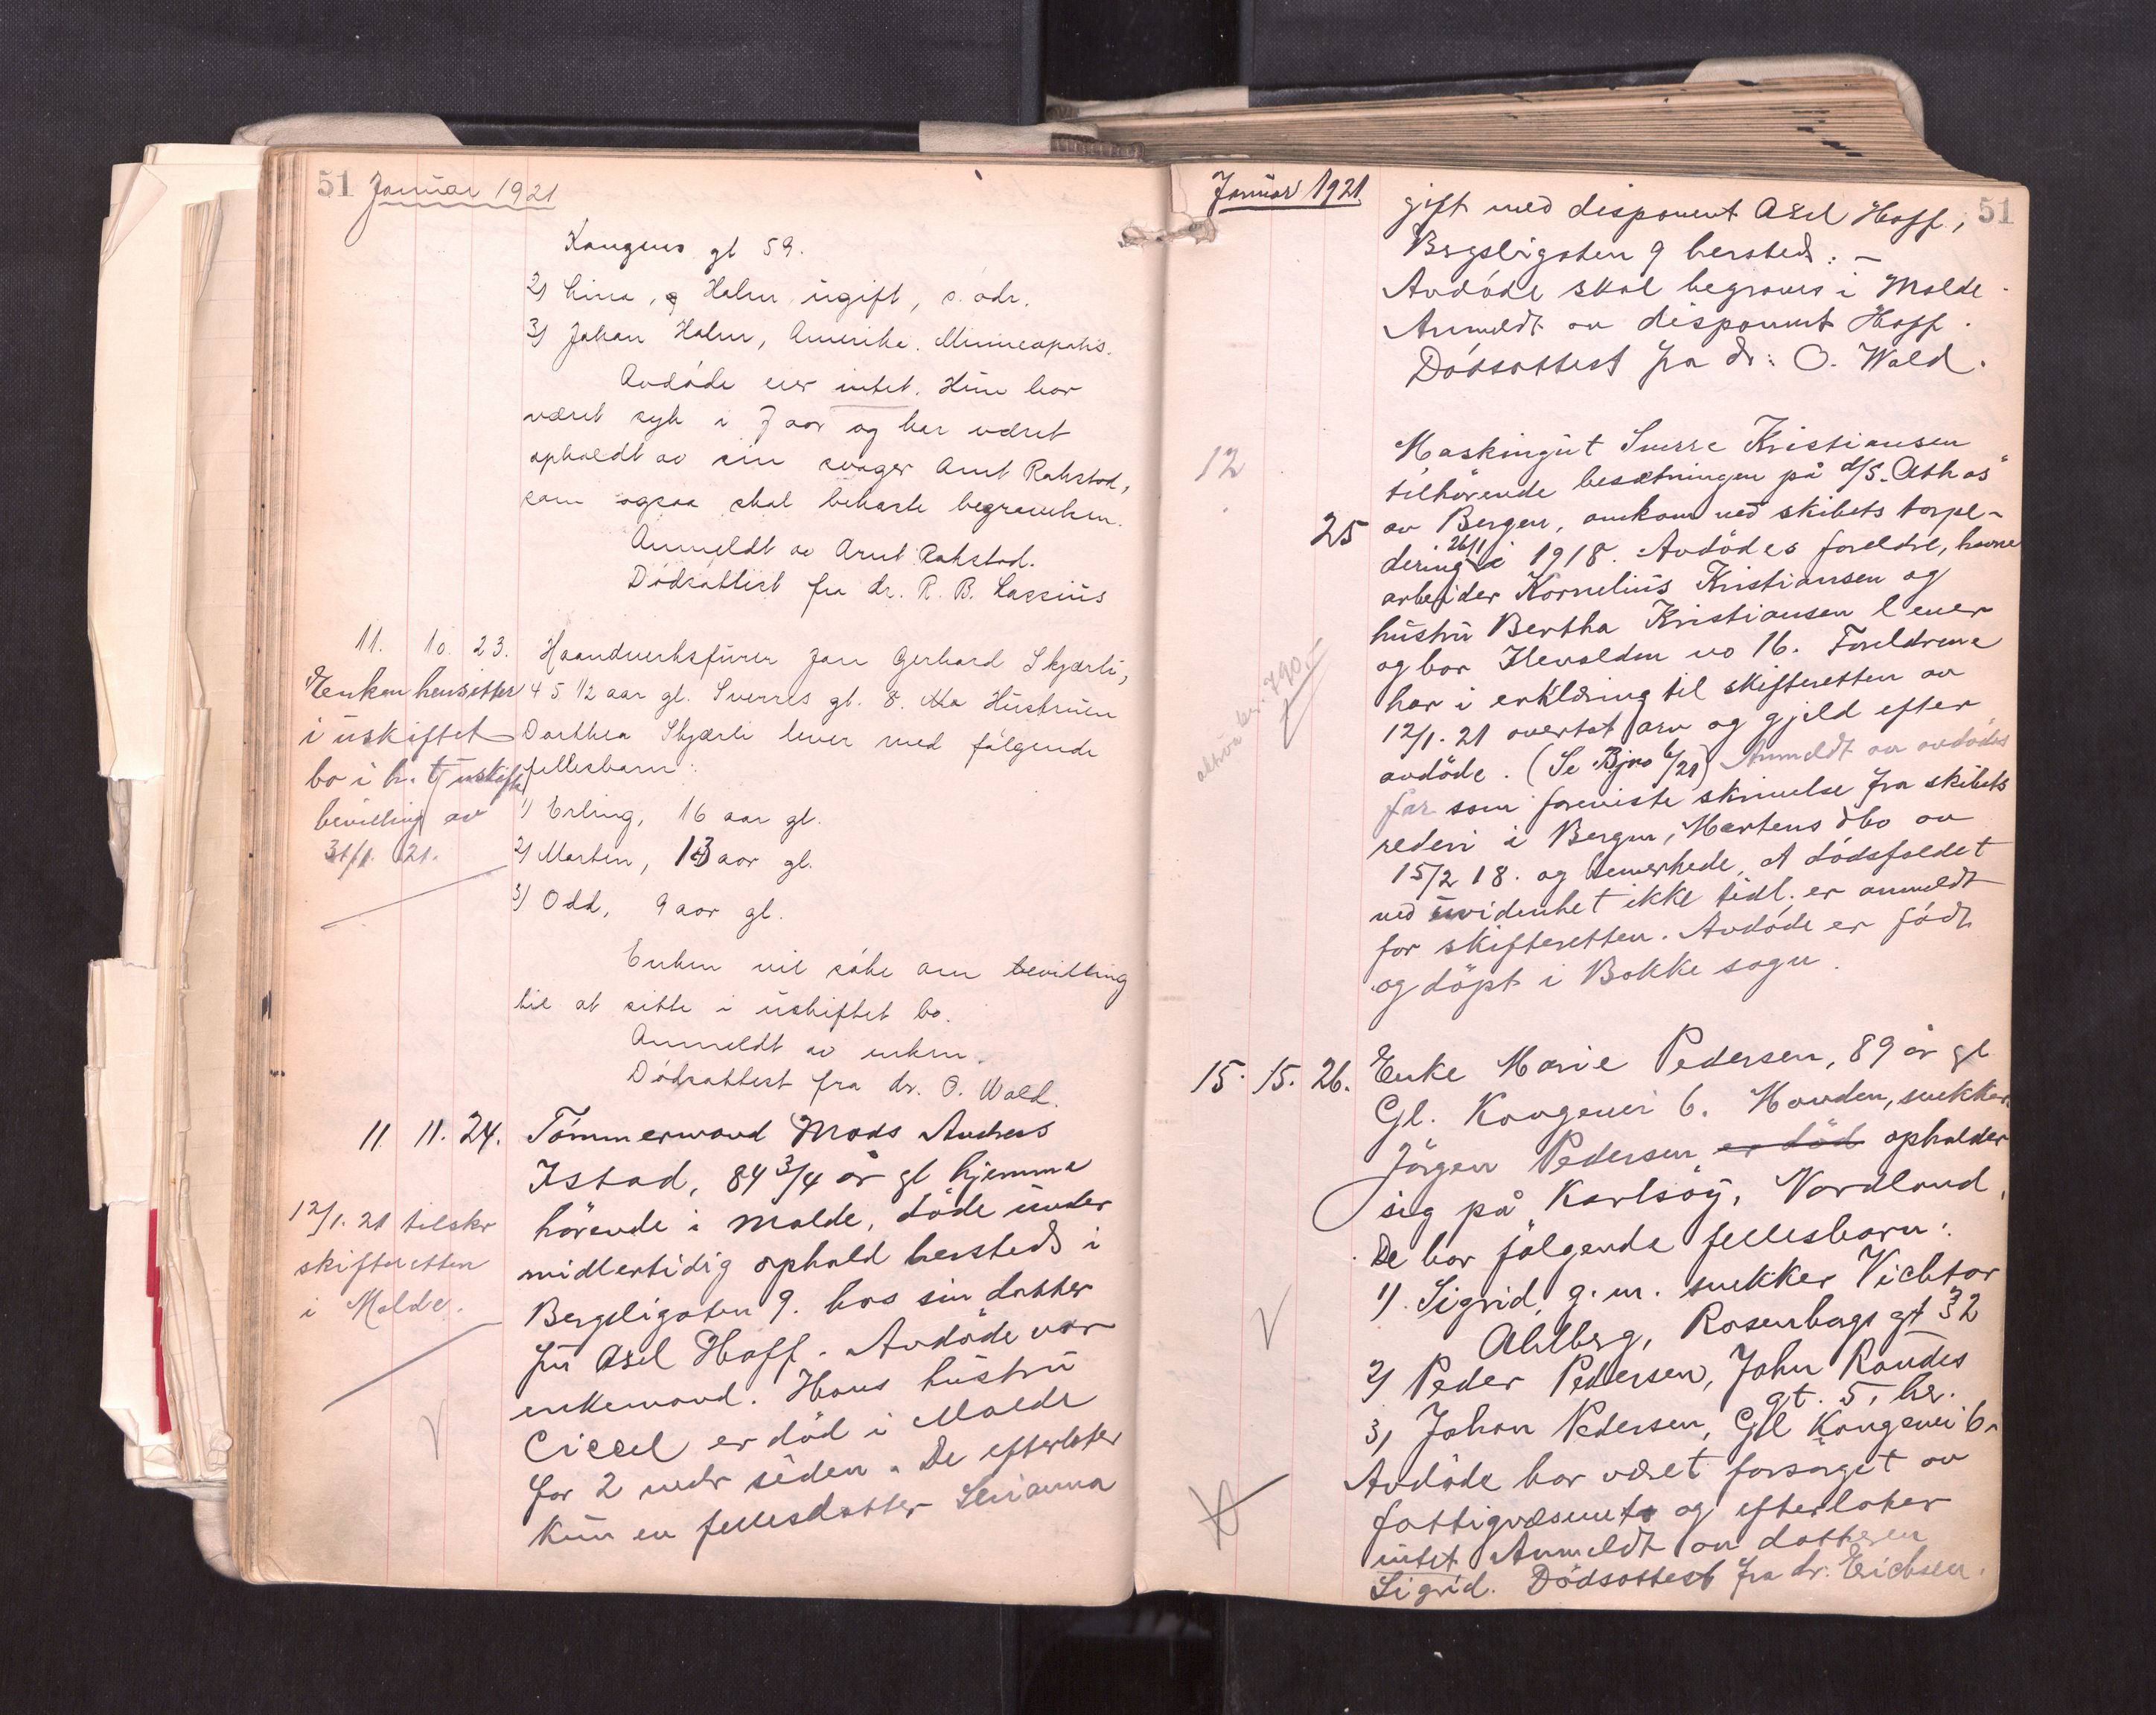 51 Januar 1921
Kongens gt 59.
2) Lina, g Holm ugift, s. adr.
3) Johan Holm, Amerika. Minneapolis.
Avdöde eier intet. Hun har
været syk i 7 aar og har været
opholdt av sin svoger Arnt Rakstad,
som ogsaa skal bekoste begravelsen.
Anmeldt av Arnt Rakstad.
Dödsattest fra dr. R. B. Lassius
11. 10. 23. Haandverksfurer Jon Gerhard Skjærli,
45 1/2 aar gl. Sverres gt. 8. Hustruen
Dorthea Skjærli lever med følgende
fellesbarn:
Enken hensitter
i uskiftet
bo i h. t uskifte
bevilling av
31/1. 21.
1) Erling, 16 aar gl.
2) Morten, 13 aar gl.
3) Odd, 9 aar gl.
Enken vil söke om bevilling
til at sitte i uskiftet bo.
Anmeldt av enken.
Dödsattest fra dr. O. Wold.
11. 11. 24. Tömmermand Mads Andreas
Istad, 84 3/4 år gl hjemme
hörende i Molde, döde under
midlertidig ophold hersteds i
Bergsligaten 9. hos sin datter
fru Axel Hoff. Avdöde var
enkemand. Hans hustru
Cissel er död i Molde
for 2 mdr siden. De efterlater
kun en fellesdatter
12/1. 21 tilskr
skifteretten
i Molde.
Januar 1921
51
gift med disponent Axel Hoff,
Bergsligaten 9 hersteds. -
Avdöde skal begraves i Molde.
Anmeldt av disponent Hoff.
Dödsattest fra dr: O. Wold.
12
25
Maskingut Sverre Kristiansen
tilhörende besætningen på d/S. "Athos"
av Bergen, omkom ved skibets torpe-
dering 26/1 i 1918. Avdödes foreldre, havne
arbeider Kornelius Kristiansen og
hustru Bertha Kristiansen lever
og bor Ilevolden no 16. Foreldrene
har i erklæring til skifteretten av
12/1. 21 overtat arv og gjeld efter
avdöde. (Se Bjno 6/21) Anmeldt av avdödes
far som foreviste skrivelse fra skibets
rederi i Bergen, Martens dbo av
15/2 18. og bemerkede, at dödsfaldet
ved uvidenhet ikke tidl. er anmeldt
for skifteretten. Avdöde er född
og döpt i Bakke sogn.
790.-
15. 15. 26. Enke Marie Pedersen, 89 år gl
Gl. Kongevei 6. Manden, snekker
Jörgen Pedersen er död opholder
sig på Karlsöy, Nordland.
De har fölgende fellesbarn:
1). Sigrid, g. m. snekker Vichtor
Ahlberg, Rosenborgs gt 32
2) Peder Pedersen, John Roudes
gt. 5, her.
3, Johan Pedersen, Gl Kongevei 6.
Avdöde har været forsörget av
fattigvæsenet og efterlater
intet. Anmeldt av datteren
Sigrid. Dödsattest fra dr. Erichsen.